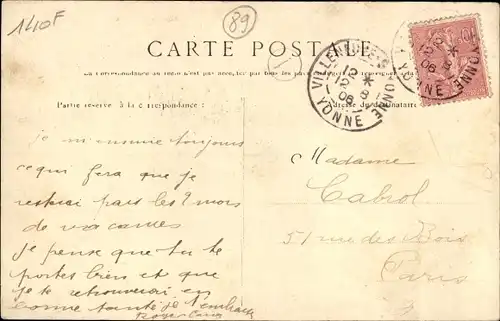 140F
89
CARTE POSTALE
La Correspondance au recto n'est pas acce
Partie réservée à la correspondance
Adresse du destinataire
VILLENEUVE-S-YONNE
12 8 06
YONNE
je m'ennuie toujours
ce qui fera que je
resterai pas les 2 mois
de vacances
je pense que tu te
portes bien et que
je te retrouverai en
bonne santé je t'embrasse
Roger
Madame
Cabrol
51 rue des Bois
Paris